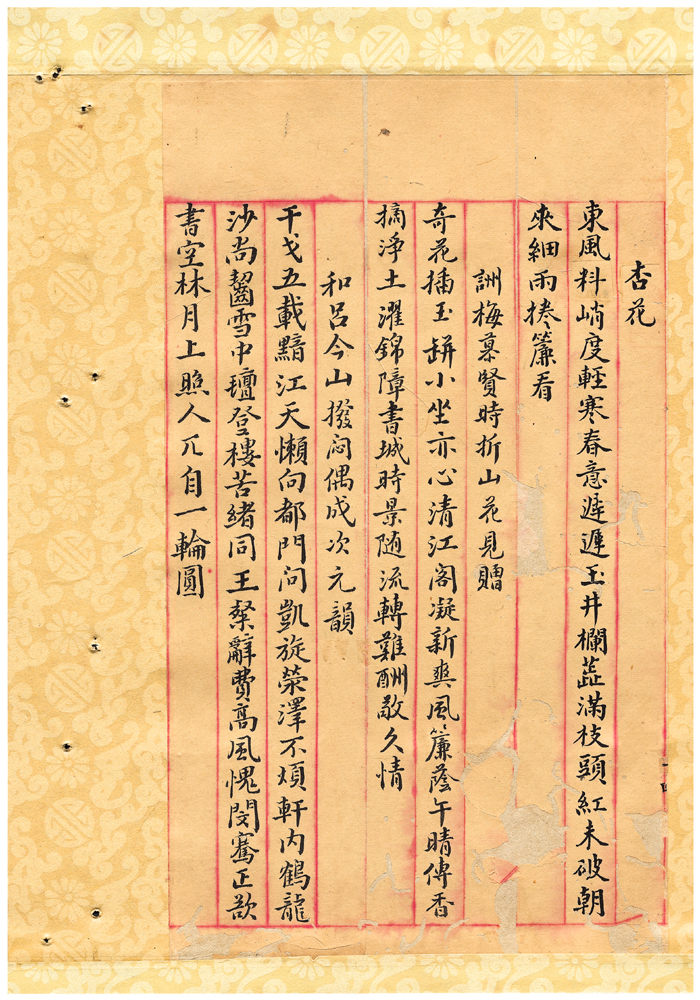 杏花
東風料峭度輕寒春意遲遲玉井欄蕋滿枝頭紅未破朝
來細雨捲簾看
詶梅慕賢時折山花見贈
奇花插玉缾小坐亦心清江閣凝新爽風簾蔭午晴傳香
摘淨土濯錦障書城時景随流轉難酬敬久情
和呂今山撥悶偶成次元韻
干戈五載黯江天懶向都門問凱旋榮澤不煩軒内鶴龍
沙尚齧雪中氊登樓苦緒同王粲辭費高風愧閔騫正欲
書空林月上照人兀自一輪圓